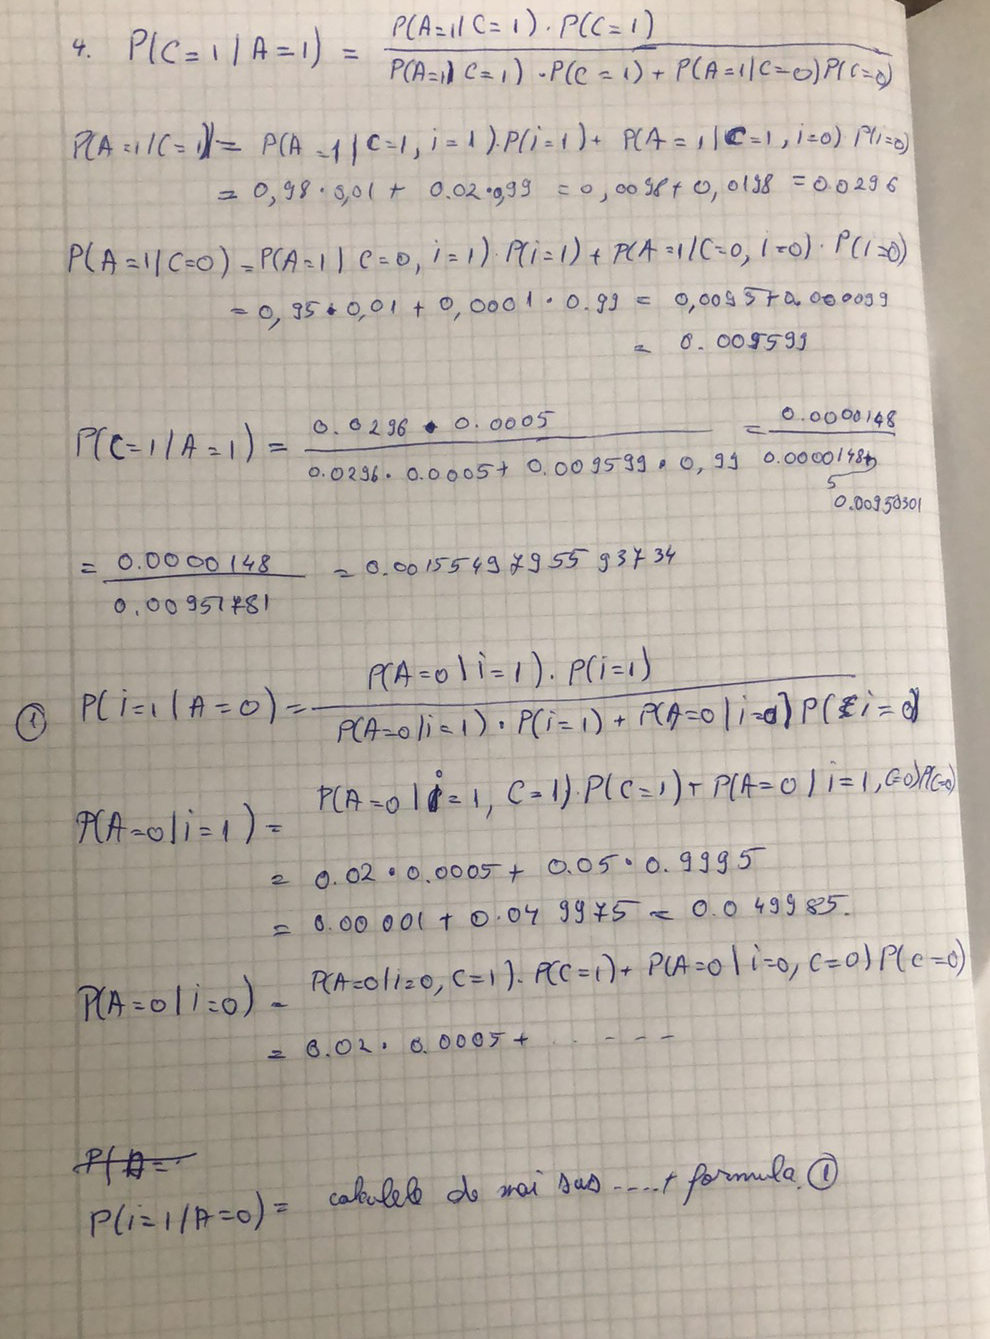 4. P(C=1/A=1) = P(A=1/C=1) · P(C=1)
P(A=1/C=1) · P(C=1) + P(A=1/C=0)P(C=0)
P(A=1/C=1) = P(A=1/C=1, i=1).P(i=1)+ P(A=1/C=1, i=0) P(i=0)
= 0,98·0,01 + 0.02·0,99 = 0,0098+0,0198 = 0.0296
P(A=1/C=0) = P(A=1/C=0, i=1)·P(i=1)+P(A=1/C=0, i=0)·P(i=0)
= 0,95·0,01 + 0,0001·0.99 = 0,0095+0.000099
= 0.009599
P(C=1/A=1) = 0.0296 · 0.0005 = 0.0000148
0.0296·0.0005+ 0.009599·0,99 0.0000148+
0.00950301
= 0.0000148 = 0.00155497955 93734
0.00951781
① P(i=1/A=0) = P(A=0|i=1). P(i=1)
P(A=0/i=1)·P(i=1) + P(A=0|i=0)P(i=0)
P(A=0/i=1) = P(A=0|i=1, C=1).P(C=1)+ P(A=0/i=1, C=0)P(C=0)
= 0.02·0.0005+ 0.05·0.9995
= 0.00001 + 0.049975 = 0.049985.
P(A=0/i=0) = P(A=0/i=0, C=1). P(C=1)+ P(A=0|i=0, C=0)P(C=0)
= 0.02· 0.0005+ . . - - -
P(A=
P(i=1/A=0)= calculele de mai sus ....+ formula ①